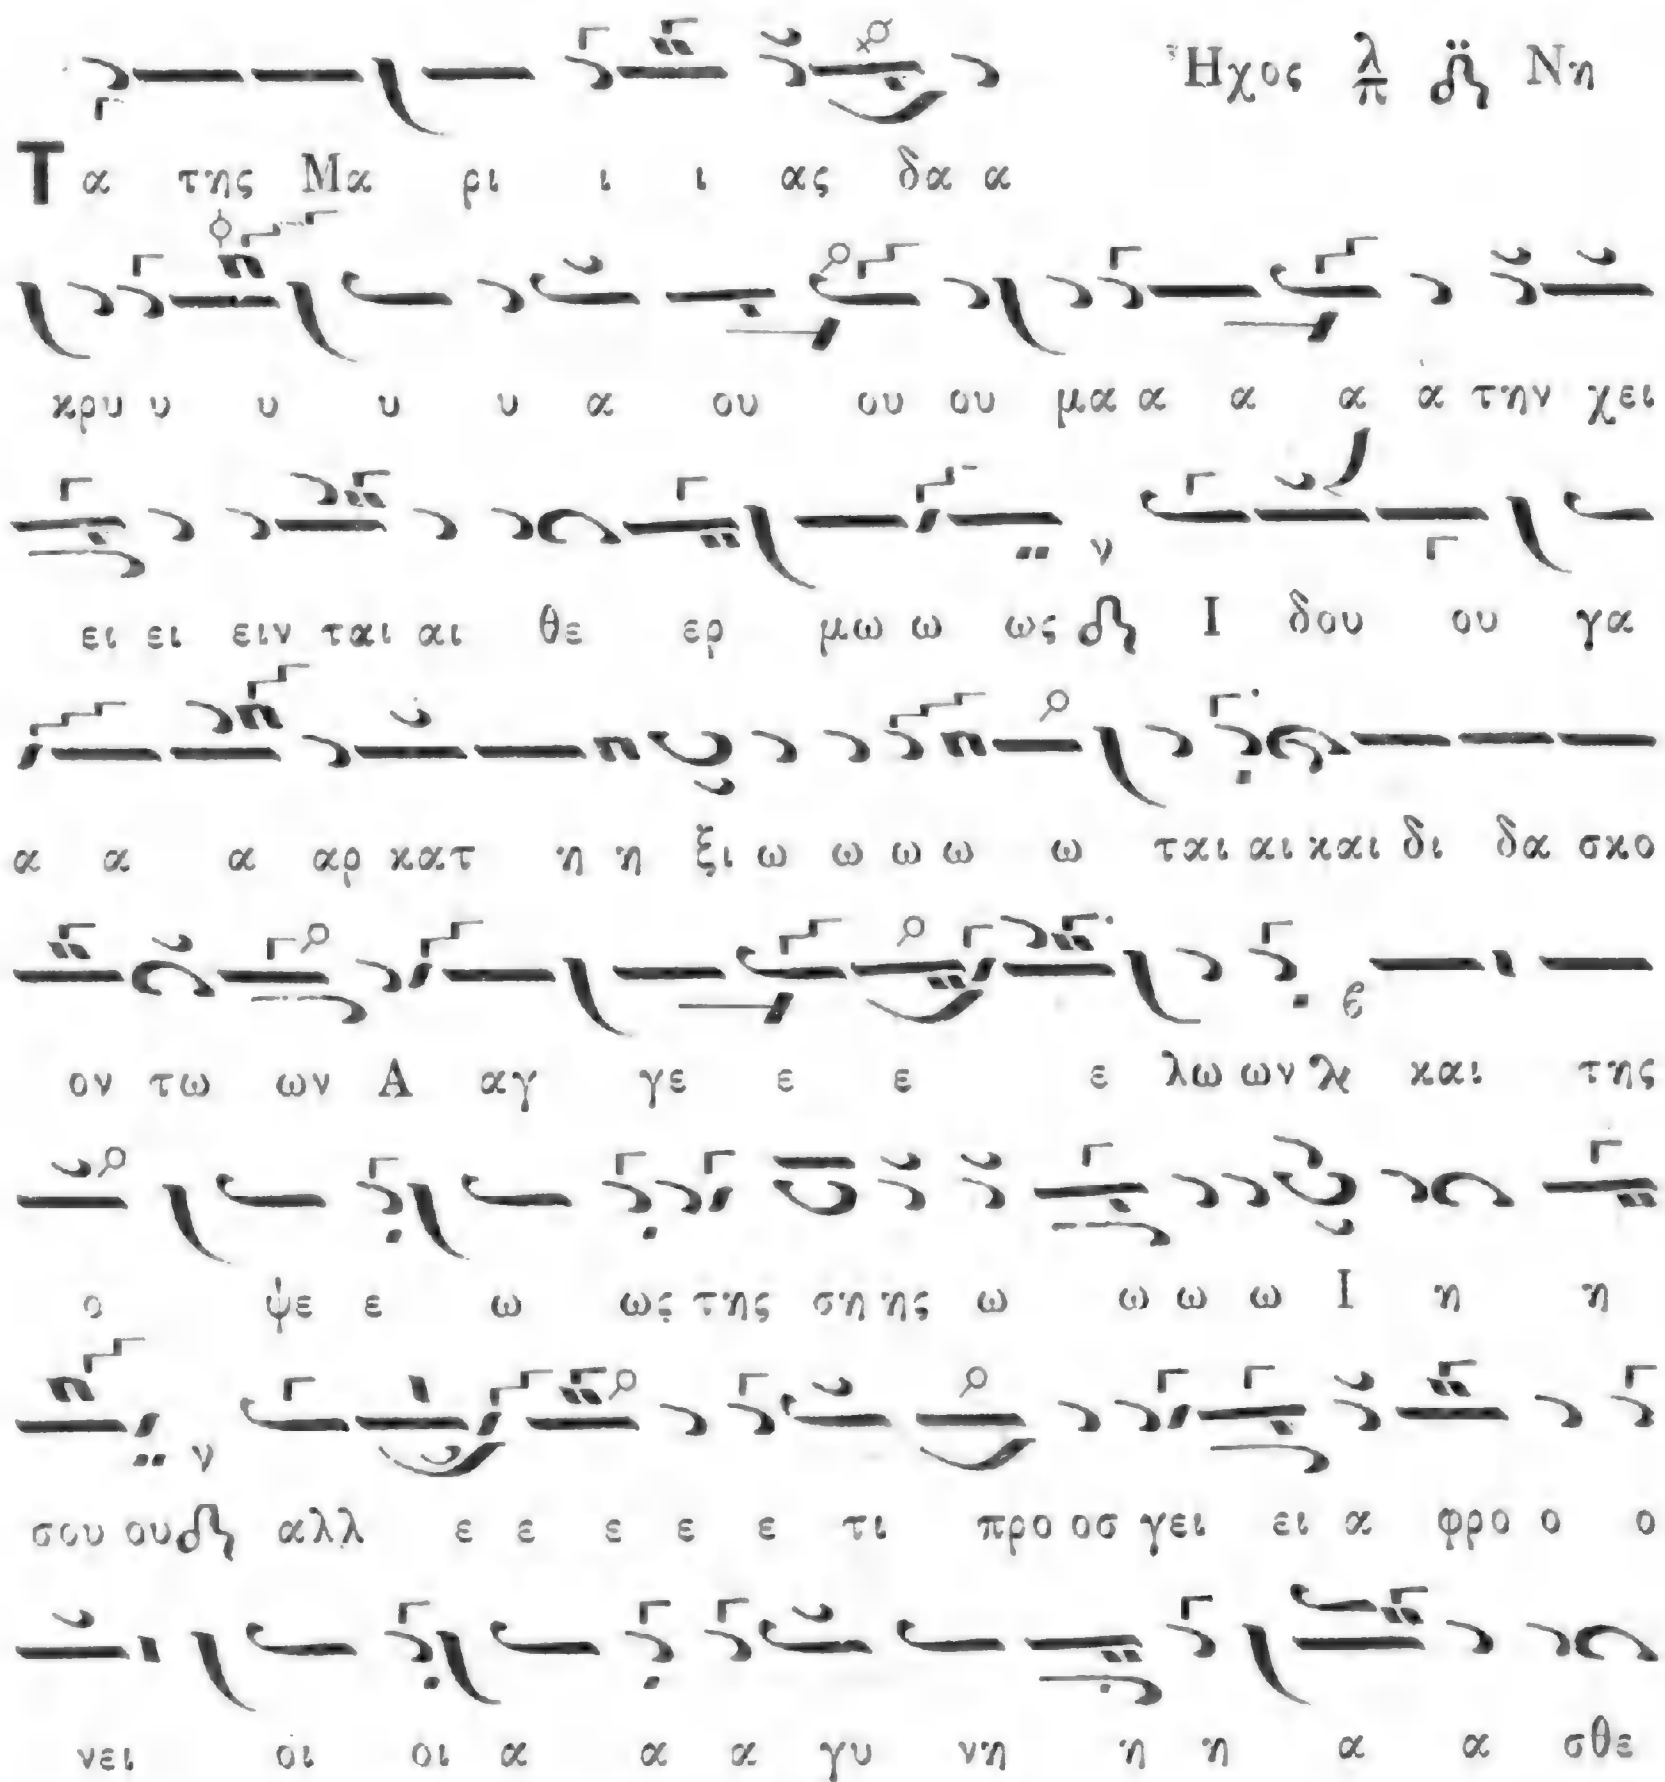 Ἦχος λ/π Νη
Τα της Μα ρι ι ι ας δα α
κρυ υ υ υ υ α ου ου ου μα α α α α την χει
ν
ει ει ειν ται αι θε ερ μω ω ως Ι δου ου γα
α α α αρ κατ η η ξι ω ω ω ω ω ται αι και δι δα σκο
ον τω ων Α αγ γε ε ε ε λω ων και της
ο ψε ε ω ως της ση ης ω ω ω ω Ι η η
ν
σου ου αλλ ε ε ε ε ε τι προ οσ γει ει α φρο ο ο
νει οι οι α α α γυ νη η η α α σθε